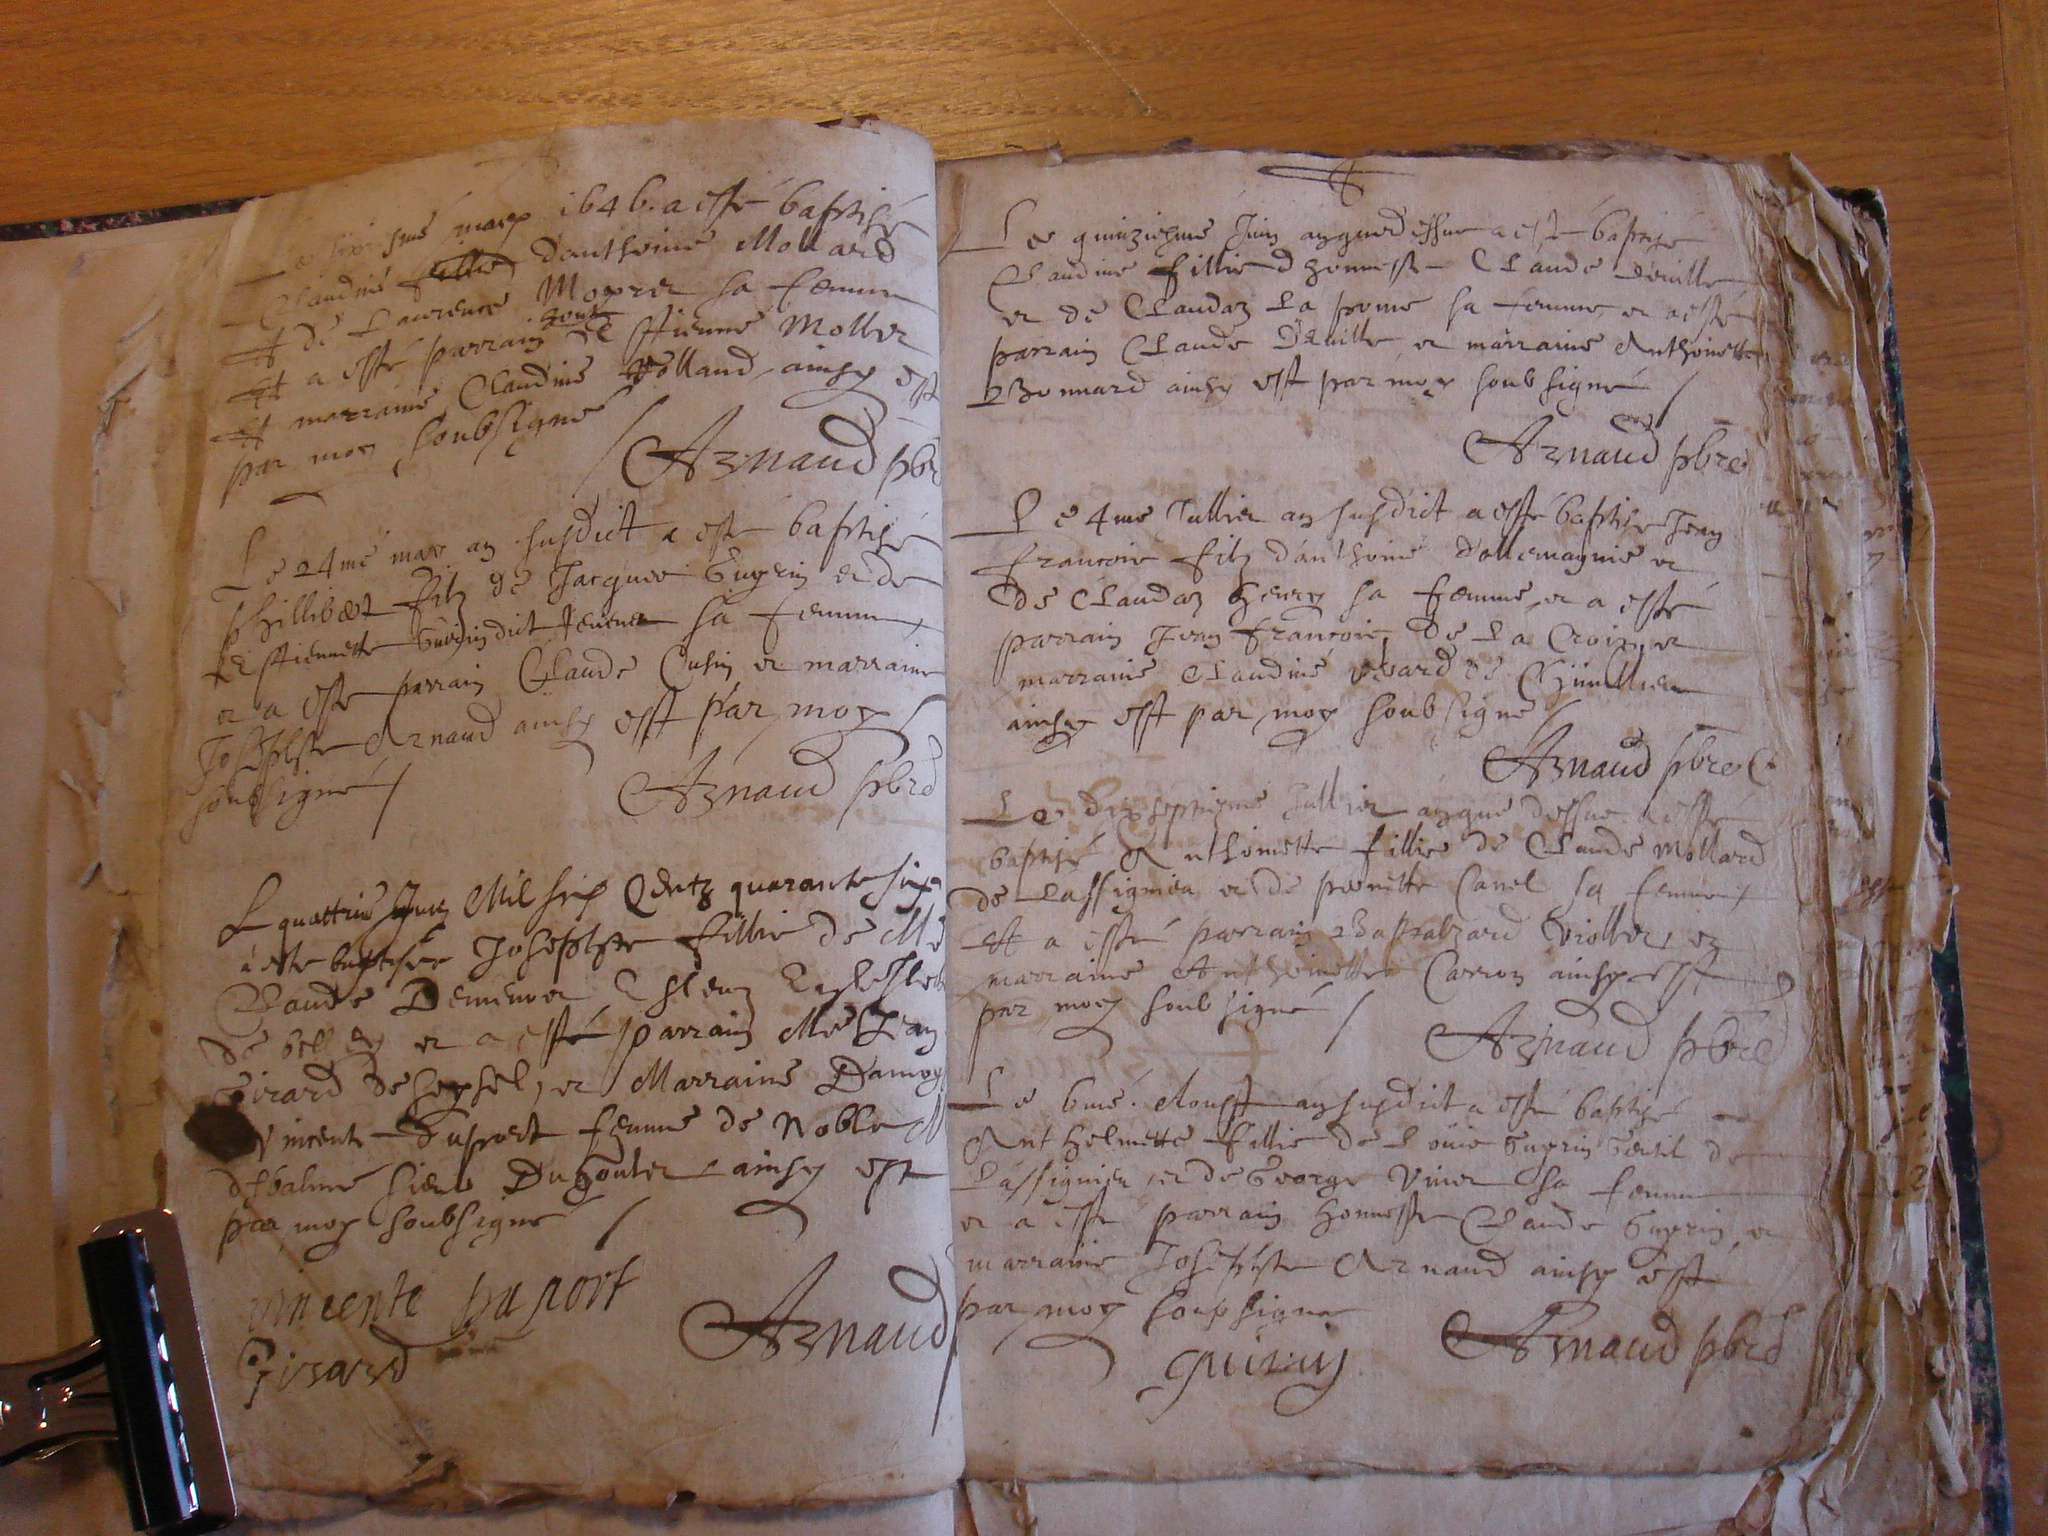 mars 1646. a esté baptisé
Claudine fillie danthoine Mollard
Et de Laurence Moxrer sa femme
Et a esté parrain hon Estienne Mollier
Et marraine Claudine Volland ainsy est
par moy soubsigné
Arnaud pbre
Le 24me mars an susdict a esté baptisé
phillibert filz de Jacques Guyrin et de
Estiennette dict sa femme
et a esté parrain Claude Cusin et marraine
Josephte Arnaud ainsy est par moy
soubsigné
Arnaud pbre
Le quattrie Juin Mil six Centz quarante six
a este baptisee Josephte fillie de Me
Claude
de belley et a esté parrain Me Jean
Girard de seyssel, et Marraine Damoy
Vincente Duport femme de Noble
de balme sieur Duhoulier ainsy est
par moy soubsigné
vincente du port
Girard
Arnaud
Le quinziesme Juin an que dessus a esté baptisé
Claudine fillie d honneste Claude Deville
et de Claudaz La porme sa femme et a esté
parrain Claude Deville et marraine Anthoinette
Bonnard ainsy est par moy soubsigné
Arnaud pbre
Le 4me Jullier an susdict a esté baptise Jean
francois filz danthoine dallemagnie et
de Claudaz henry sa femme, et a esté
parrain Jean francois de La Croix et
marraine Claudine de
ainsy est par moy soubsigné
Arnaud pbre
Le dixseptiesme Jullier an que dessus a esté
baptisé Anthoinette fillie de Claude Mollard
de Lassignieu et de pernette Canel sa femme
Et a esté parrain Baltahzard Viollier, et
marraine Anthoinette Carron ainsy est
par moy soubsigné
Arnaud pbre
Le 6me Aoust an susdict a esté baptisé
Anthelmette fillie de Louis Guyrin Gentil de
Lassignieu et de George Vinier sa femme
et a esté parrain honneste Claude Guyrin, et
marraine Josephte Arnaud ainsy est
par moy soubsigné
guirin
Arnaud pbre